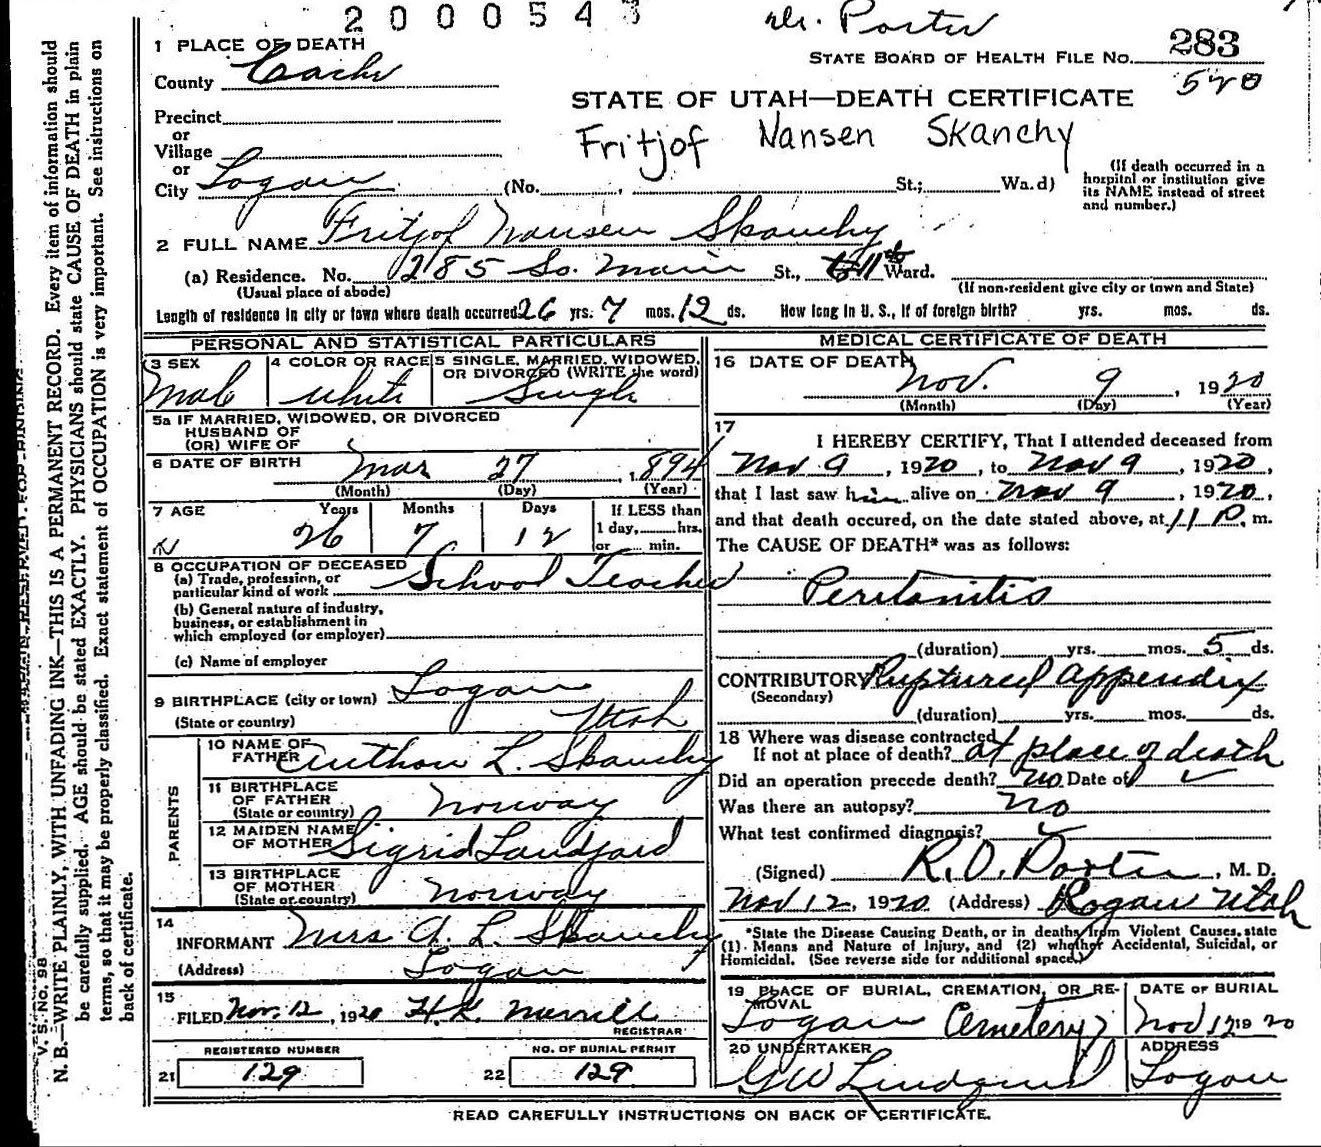 2000543
Dr. Porter
STATE BOARD OF HEALTH FILE NO. 283
520
1 PLACE OF DEATH
County Cache
STATE OF UTAH—DEATH CERTIFICATE
Precinct
or
Village
or
City Logan (No. , St.; Wa.d)
Fritjof Nansen Skanchy
(If death occurred in a
hospital or institution give
its NAME instead of street
and number.)
2 FULL NAME Fritjof Nansen Skanchy
(a) Residence. No. 285 So. Main St., 11th Ward.
(Usual place of abode) (If non-resident give city or town and State)
Length of residence in city or town where death occurred 26 yrs. 7 mos. 12 ds. How long in U. S., if of foreign birth? yrs. mos. ds.
PERSONAL AND STATISTICAL PARTICULARS
3 SEX Male
4 COLOR OR RACE White
5 SINGLE, MARRIED, WIDOWED,
OR DIVORCED (WRITE the word)
Single
5a IF MARRIED, WIDOWED, OR DIVORCED
HUSBAND OF
(OR) WIFE OF
6 DATE OF BIRTH Mar 27, 1894
(Month) (Day) (Year)
7 AGE Years Months Days If LESS than
1 day, hrs.
or min.
26 7 12
8 OCCUPATION OF DECEASED
(a) Trade, profession, or
particular kind of work School Teacher
(b) General nature of industry,
business, or establishment in
which employed (or employer)
(c) Name of employer
9 BIRTHPLACE (city or town) Logan
(State or country) Utah
PARENTS
10 NAME OF
FATHER Anthon L. Skanchy
11 BIRTHPLACE
OF FATHER
(State or country) Norway
12 MAIDEN NAME
OF MOTHER Sigrid Landjard
13 BIRTHPLACE
OF MOTHER
(State or country) Norway
14
INFORMANT Mrs A. L. Skanchy
(Address) Logan
15
FILED Nov. 12, 1920 H.K. Merrill
REGISTRAR
REGISTERED NUMBER
21 129
NO. OF BURIAL PERMIT
22 129
MEDICAL CERTIFICATE OF DEATH
16 DATE OF DEATH
Nov. 9, 1920
(Month) (Day) (Year)
17
I HEREBY CERTIFY, That I attended deceased from
Nov 9, 1920, to Nov 9, 1920,
that I last saw him alive on Nov 9, 1920,
and that death occured, on the date stated above, at 11 P. m.
The CAUSE OF DEATH* was as follows:
Peritonitis
(duration) yrs. mos. 5 ds.
CONTRIBUTORY Ruptured Appendix
(Secondary)
(duration) yrs. mos. ds.
18 Where was disease contracted
If not at place of death? at place of death
Did an operation precede death? no Date of ✓
Was there an autopsy? no
What test confirmed diagnosis? ✓
(Signed) R.O. Porter, M. D.
Nov 12, 1920 (Address) Logan Utah
*State the Disease Causing Death, or in deaths from Violent Causes, state
(1) Means and Nature of Injury, and (2) whether Accidental, Suicidal, or
Homicidal. (See reverse side for additional space.)
19 PLACE OF BURIAL, CREMATION, OR RE-
MOVAL
Logan Cemetery
DATE OF BURIAL
Nov 12 1920
20 UNDERTAKER
G W Lindquist
ADDRESS
Logan
READ CAREFULLY INSTRUCTIONS ON BACK OF CERTIFICATE.
V. S. No. 98
N. B.—WRITE PLAINLY, WITH UNFADING INK—THIS IS A PERMANENT RECORD. Every item of information should
be carefully supplied. AGE should be stated EXACTLY. PHYSICIANS should state CAUSE OF DEATH in plain
terms, so that it may be properly classified. Exact statement of OCCUPATION is very important. See instructions on
back of certificate.